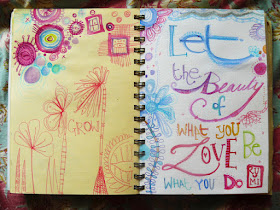 GROW
Let
the Beauty
of
WHAT YOU
LOVE Be
WHAT YOU DO